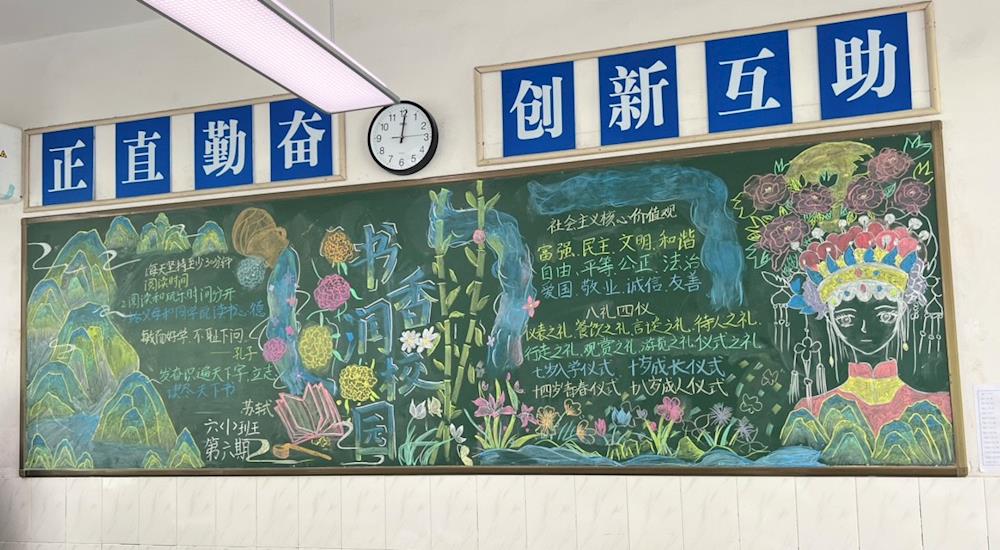 正直勤奋
创新互助
每天坚持至少30分钟
阅读时间
2.阅读和玩乐时间分开
敏而好学 不耻下问
——孔子
发奋识遍天下字,立志
读尽天下书
苏轼
六(小)班
第六期
书香润校园
社会主义核心价值观
富强、民主、文明、和谐
自由、平等、公正、法治
爱国、敬业、诚信、友善
八礼四仪
仪表之礼、餐饮之礼、言谈之礼、待人之礼、
行走之礼、观赏之礼、游览之礼、仪式之礼
七岁入学仪式 十岁成长仪式
十四岁青春仪式 十八岁成人仪式
12
1
2
3
4
5
6
7
8
9
10
11